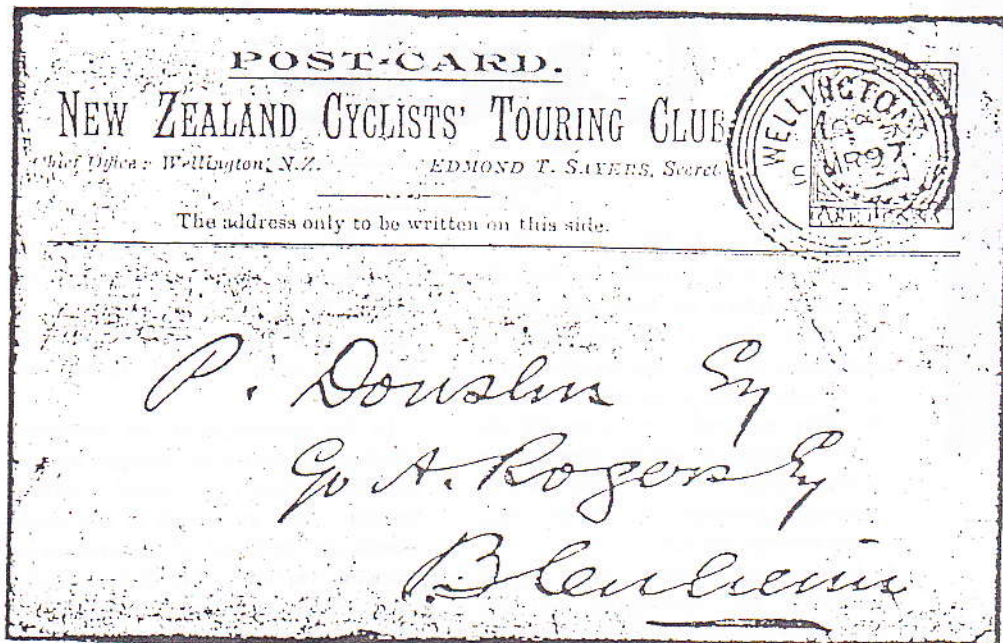 POST-CARD.
NEW ZEALAND CYCLISTS' TOURING CLUB
Chief Office: Wellington, N.Z. EDMOND T. SAYERS, Secret
The address only to be written on this side.
WELLINGTON
P. Douslin Esq
A. Rogers Esq
Blenheim